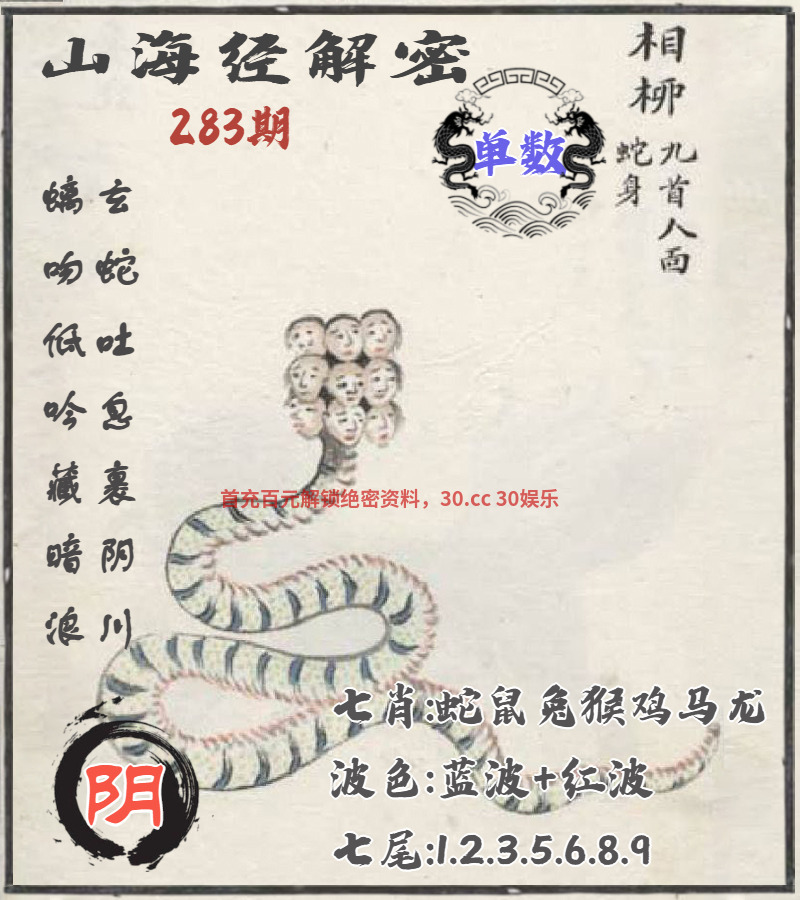 山海经解密
283期
单数
相柳
九首人面
蛇身
玄蛇吐息裹阴川
螭吻低吟藏暗浪
首充百元解锁绝密资料，30.cc 30娱乐
七肖:蛇鼠兔猴鸡马龙
波色:蓝波+红波
七尾:1.2.3.5.6.8.9
阴